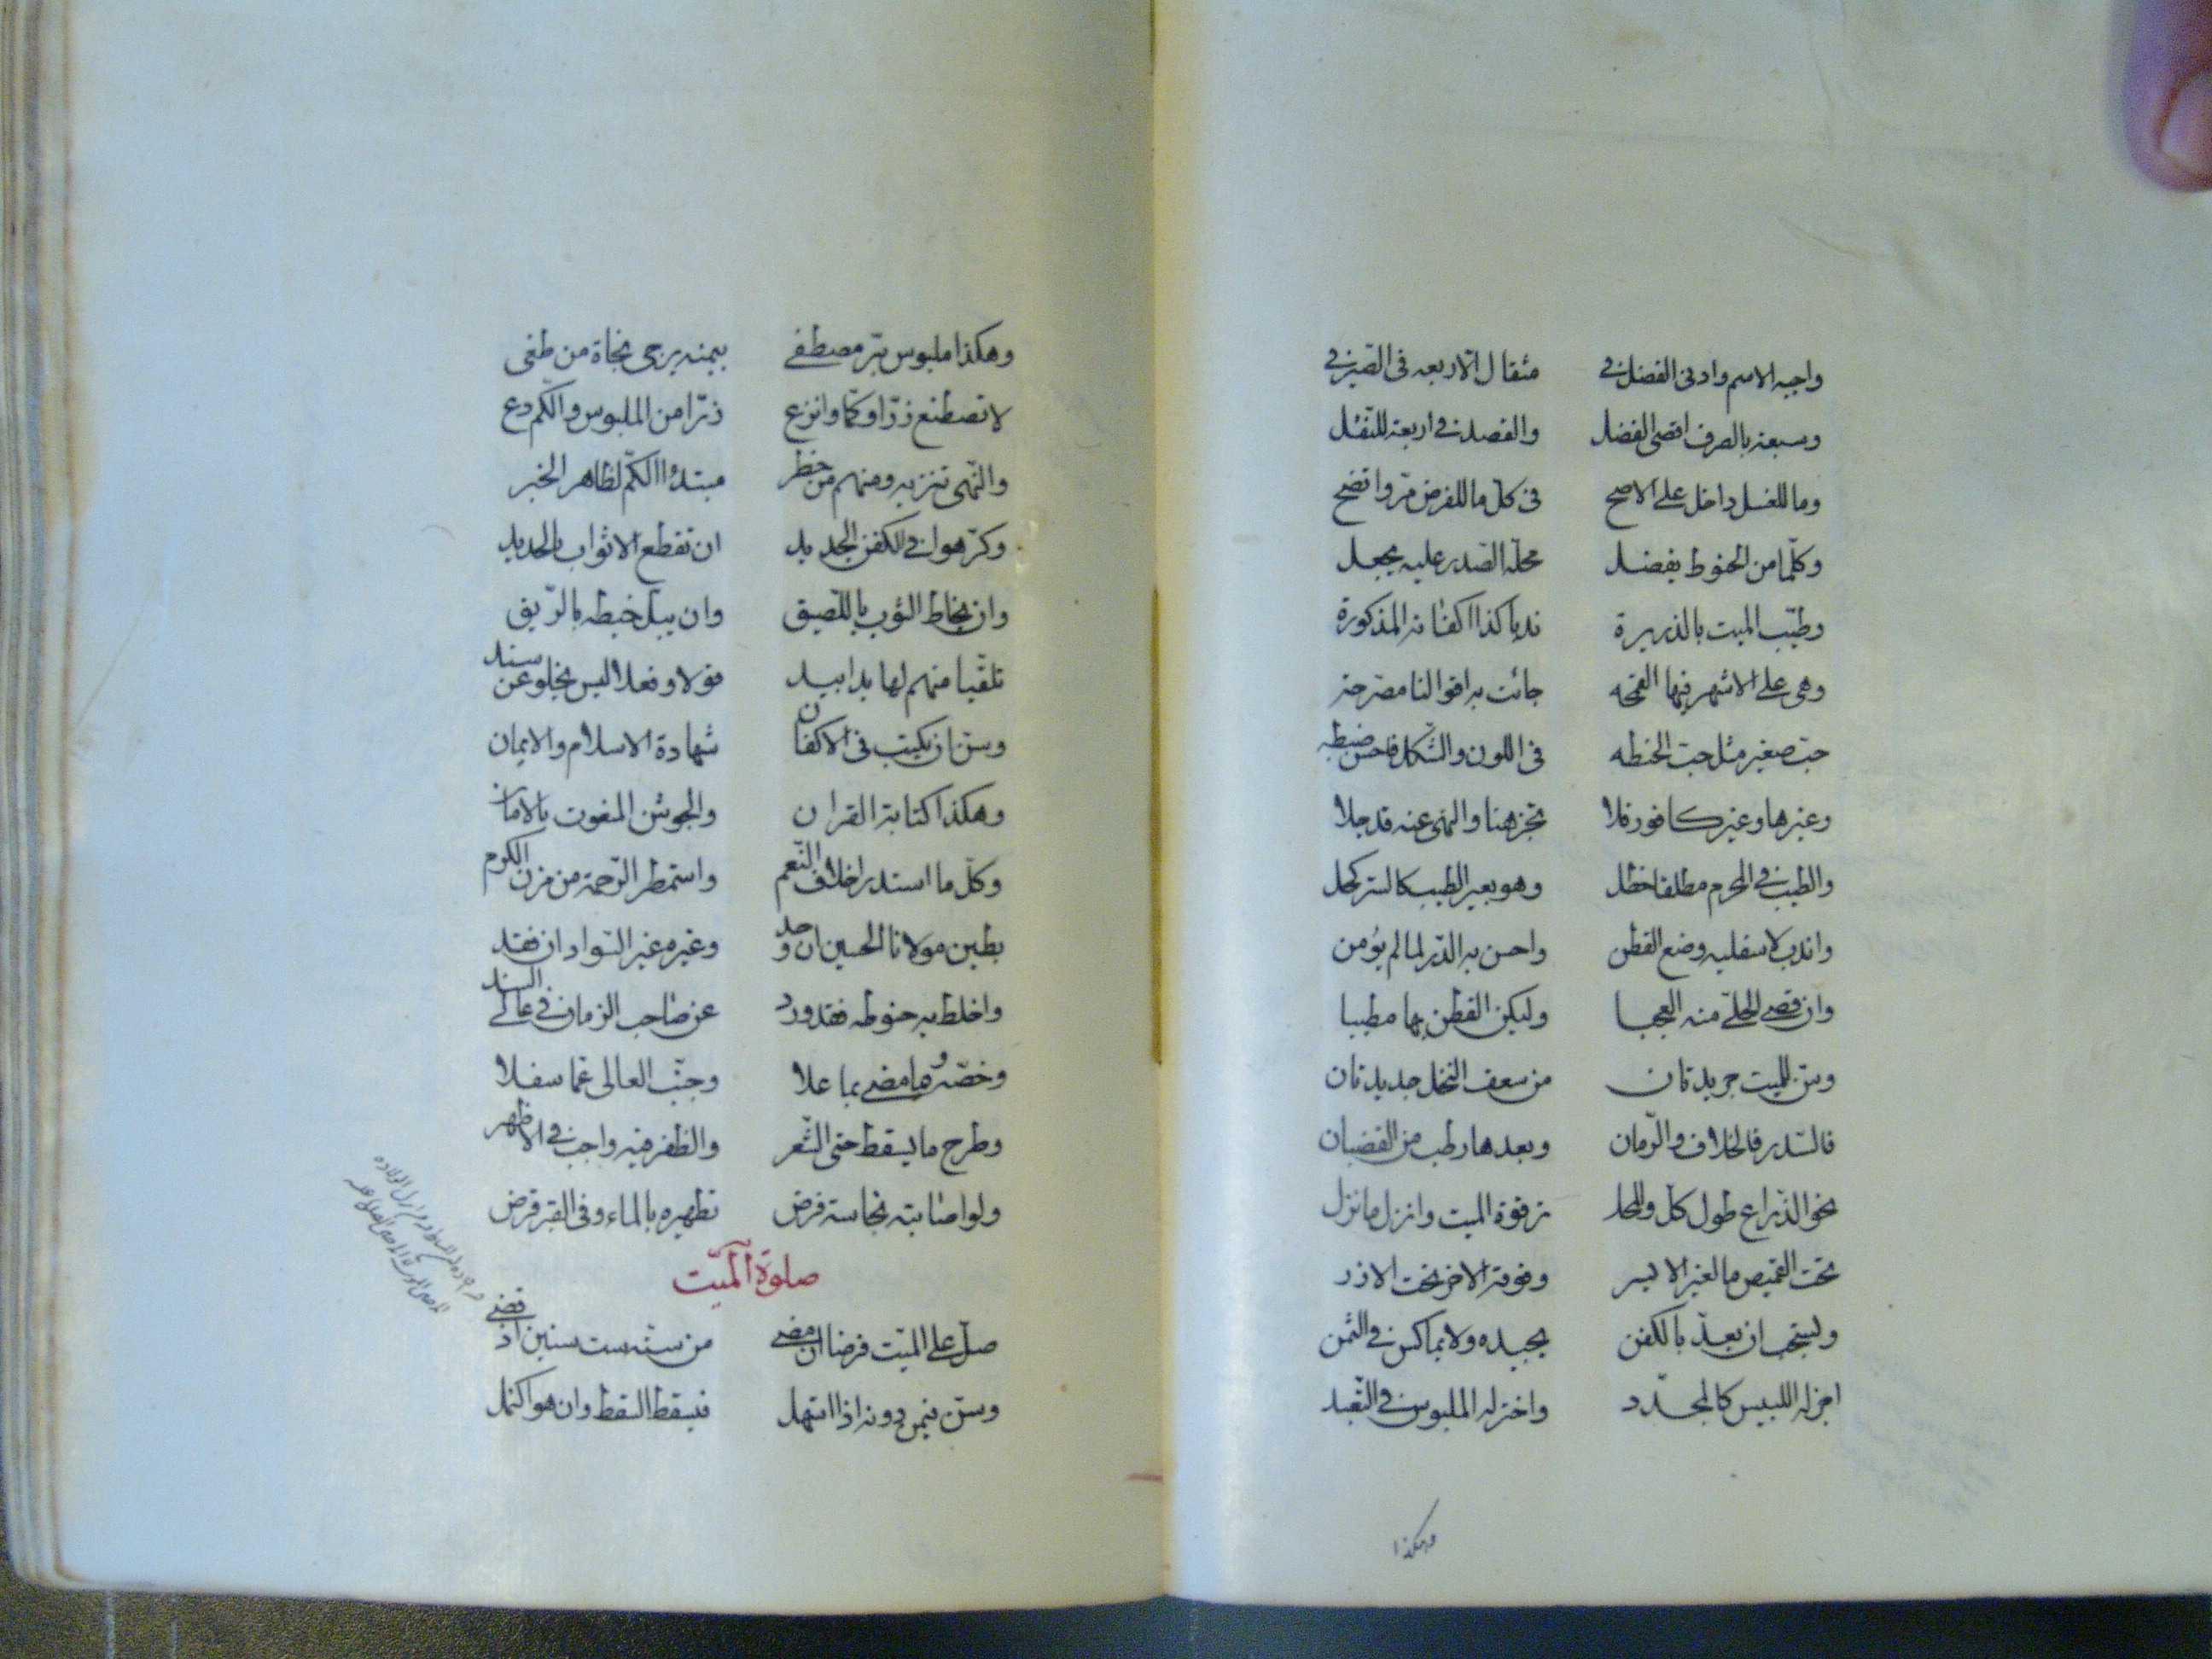 واجبه الاسم وادنى الفضل في مثقال الاربعه في الصيرفي
وسبعة بالصرف اقصى الفضل والفصل في اربعة للثقل
وما للغسل داخل على الاصح في كل ما للفرض مر واتضح
وكلما من الحنوط يفضل محله الصدر عليه يجعل
وطيب الميت بالذريرة ندبا كذا اكفانه المذكورة
وهي على الاشهر فيها القمحه جائت به اقوالنا مصرحة
حب صغير مثل حب الحنطه في اللون والشكل فاحسن ضبطه
وغيرها وغير كافور فلا تجز هنا والنهى عنه قد جلا
والطيب في المحرم مطلقا حظل وهو بغير الطيب كالستر كمل
واندب لاسفليه وضع القطن واحسن به الدبر لما لم يؤمن
وان قضى الحلي منه العجبا وليكن القطن بها مطيبا
وسن للميت جريدتان من سعف النخل جديدتان
فالسدر فالخلاف والرمان وبعدها رطب من القضبان
نحو الذراع طول كل ولتحل ترقوة الميت وانزل ما نزل
تحت القميص ما لغير الايسر وفوقه الاخر تحت الازر
وليستحب ان يعد بالكفن يجيده ولا يماكس في الثمن
اجز له اللبيس كالمجدد واختر له الملبوس في التعبد
وهكذا
وهكذا ملبوس بر مصطفى بيمنه يرجى نجاة من طغى
لا تصطنع زرا وكما وانزع زرا من الملبوس والكم دع
والنهى تنزيه ومنهم من حظر مبتدءا الكم لظاهر الخبر
وكرهوا في الكفن الجديد ان تقطع الاثواب بالحديد
وان يخاط الثوب باللصيق وان يبل خيطه بالريق
تلقيا منهم لها يدا بيد قولا وفعلا ليس يخلو عن سند
وسن ان يكتب في الاكفان شهادة الاسلام والايمان
وهكذا كتابة القران والجوشن المنعوت بالامان
وكل ما استدر اخلاف النعم واستمطر الرحمة من مزن الكرم
بطين مولانا الحسين ان وجد وغيره غير السواد ان فقد
واخلط به حنوطه فقد ورد عن صاحب الزمان في عالي السند
وخصه وما مضى بما علا وجنب العالى عما سفلا
وطرح ما يسقط حتى الشعر والظفر فيه واجب في الاظهر
ولو اصابته نجاسة فرض تطهيره بالماء وفي القبر قرض
صلوة الميت
صل على الميت فرضا ان مضى من سنه ست سنين اذ قضى
وسن فيمن دونه اذا استهل فيسقط السقط وان هو اكتمل